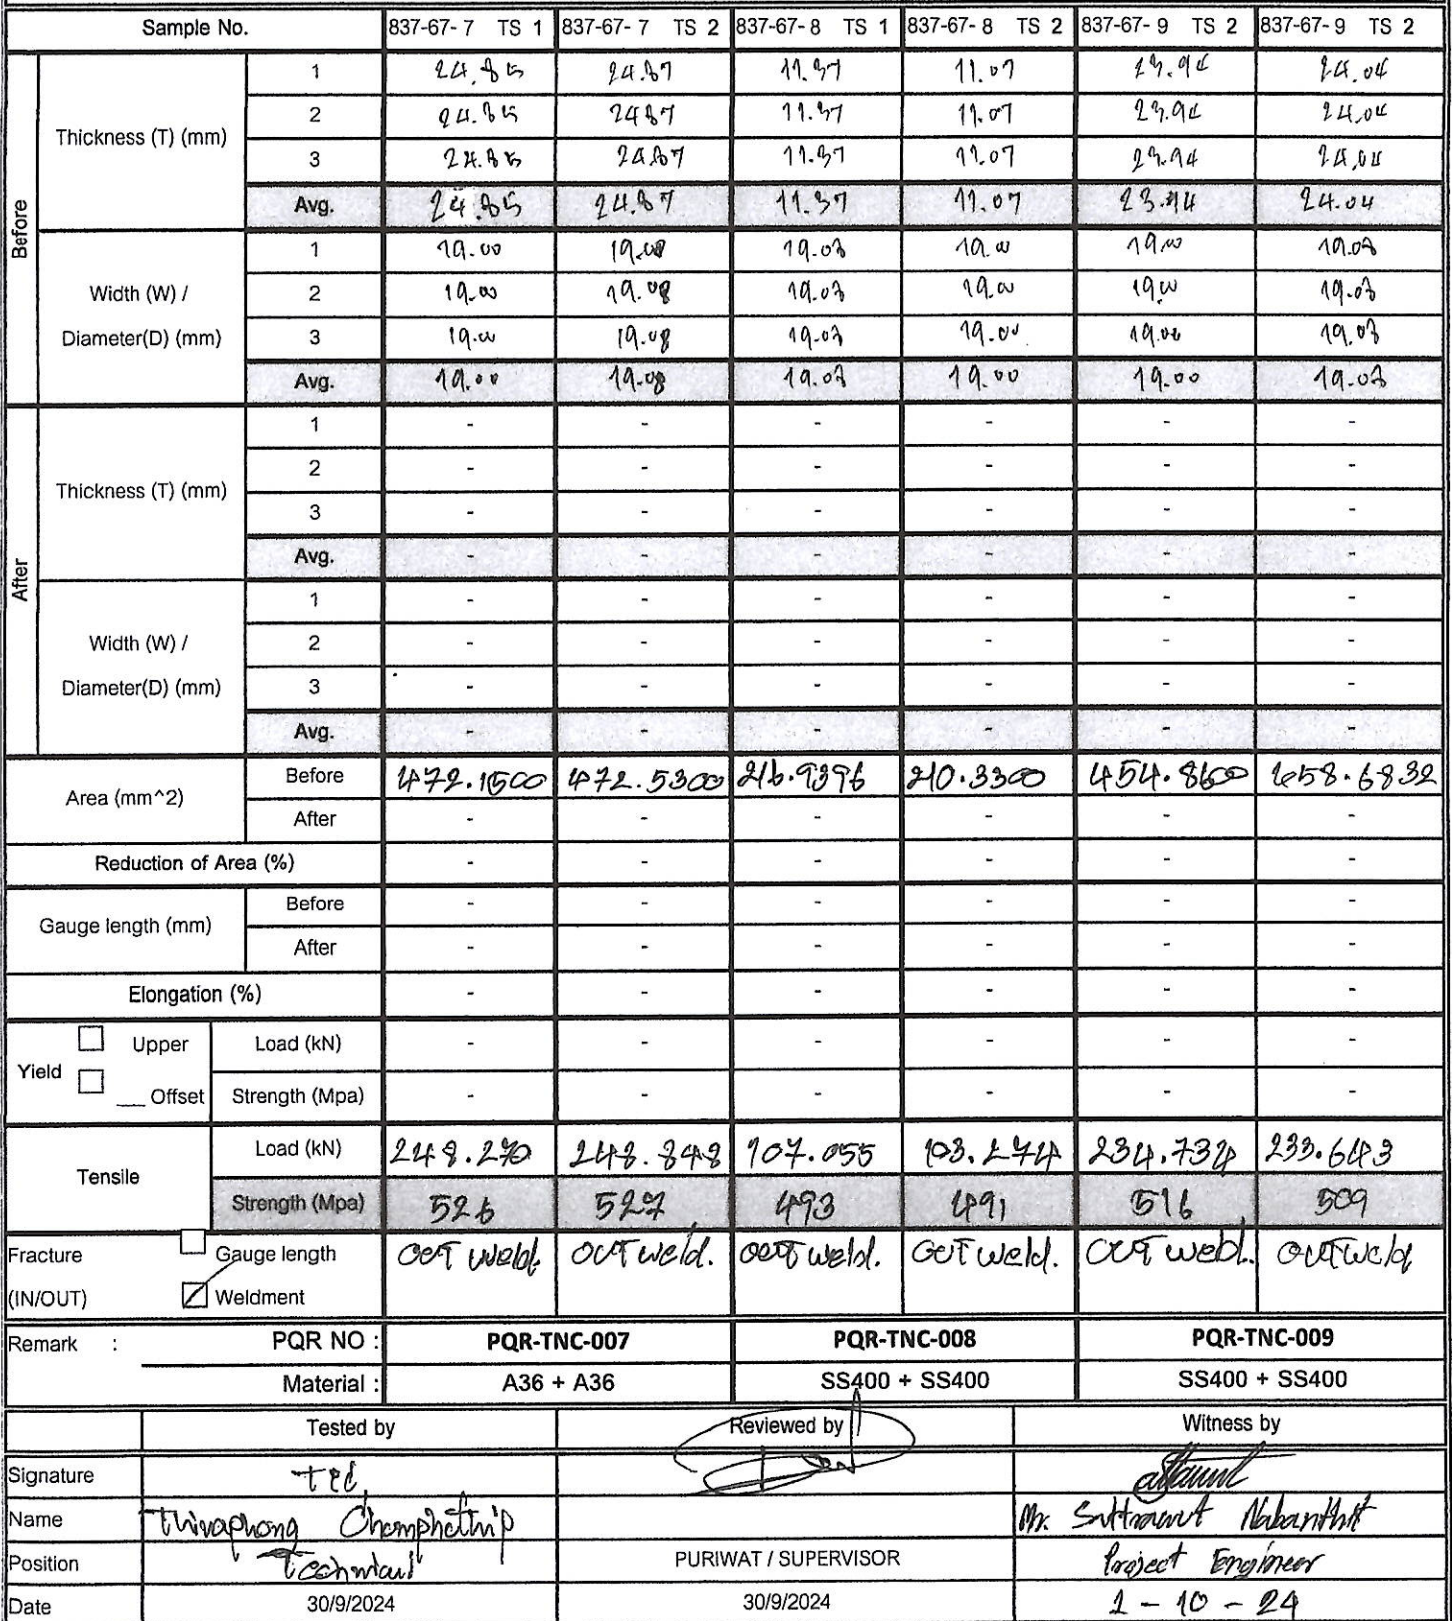 Sample No. 837-67- 7 TS 1 837-67- 7 TS 2 837-67- 8 TS 1 837-67- 8 TS 2 837-67- 9 TS 2 837-67- 9 TS 2
Before
Thickness (T) (mm)
1 24.85 24.87 11.37 11.07 23.94 24.04
2 24.85 24.87 11.37 11.07 23.94 24.04
3 24.85 24.87 11.37 11.07 23.94 24.04
Avg. 24.85 24.87 11.37 11.07 23.94 24.04
Width (W) /
Diameter(D) (mm)
1 19.00 19.08 19.03 19.00 19.00 19.03
2 19.00 19.08 19.03 19.00 19.00 19.03
3 19.00 19.08 19.03 19.00 19.00 19.03
Avg. 19.00 19.08 19.03 19.00 19.00 19.03
After
Thickness (T) (mm)
1 - - - - - -
2 - - - - - -
3 - - - - - -
Avg. - - - - - -
Width (W) /
Diameter(D) (mm)
1 - - - - - -
2 - - - - - -
3 - - - - - -
Avg. - - - - - -
Area (mm^2)
Before 472.1500 472.5300 216.9396 210.3300 454.8600 458.6832
After - - - - - -
Reduction of Area (%) - - - - - -
Gauge length (mm)
Before - - - - - -
After - - - - - -
Elongation (%) - - - - - -
Yield
Upper Load (kN) - - - - - -
__ Offset Strength (Mpa) - - - - - -
Tensile
Load (kN) 248.270 248.848 107.055 103.274 234.732 233.643
Strength (Mpa) 526 527 493 491 516 509
Fracture Gauge length OUT weld. OUT weld. OUT weld. OUT weld. OUT weld. OUT weld
(IN/OUT) Weldment
Remark : PQR NO : PQR-TNC-007 PQR-TNC-008 PQR-TNC-009
Material : A36 + A36 SS400 + SS400 SS400 + SS400
Tested by Reviewed by Witness by
Signature
Name Thivaphong Mr.
Position PURIWAT / SUPERVISOR Project Engineer
Date 30/9/2024 30/9/2024 1 - 10 - 24